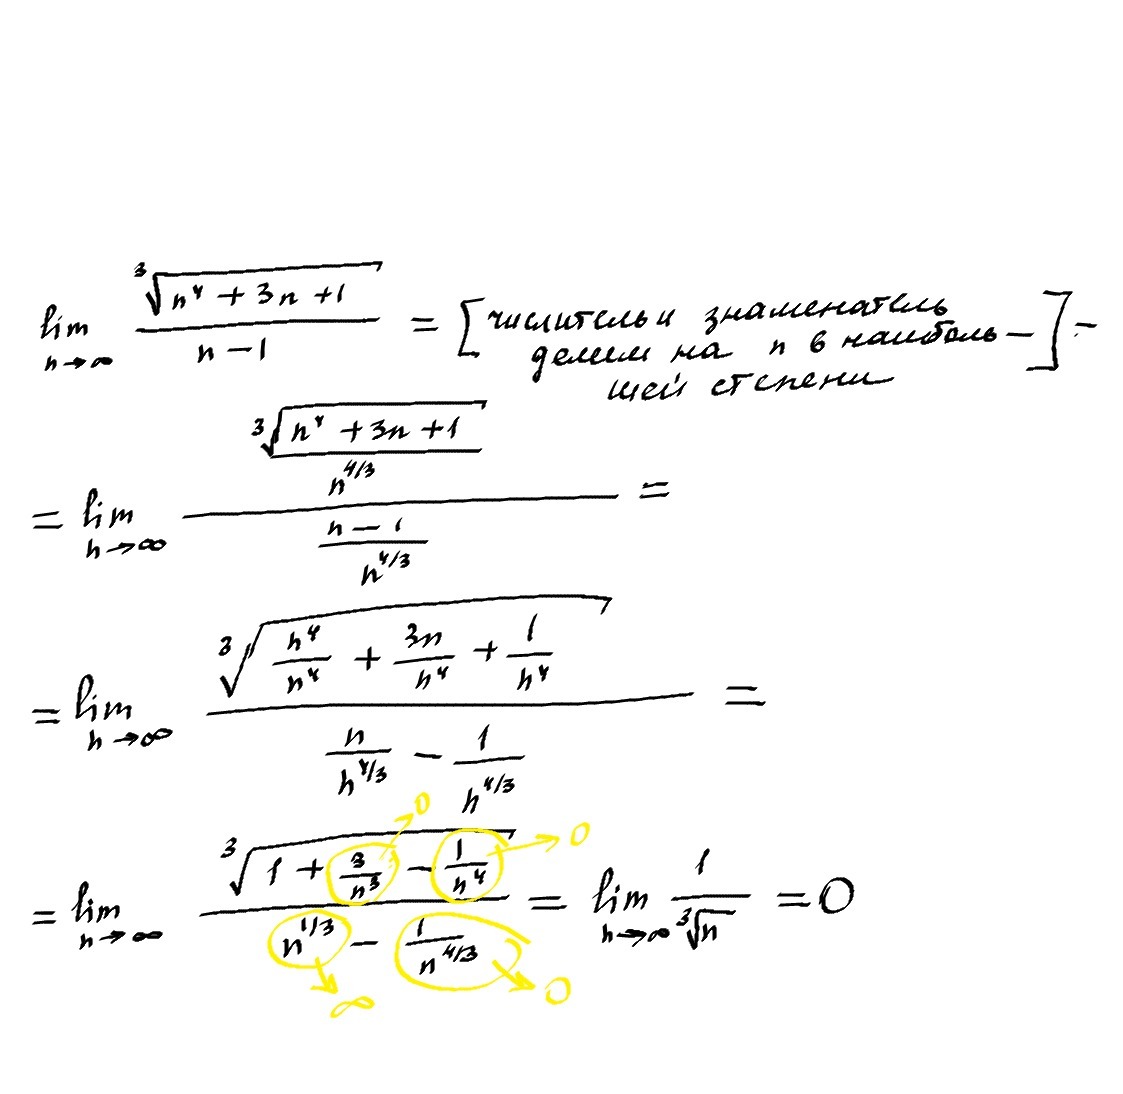 lim n→∞ ∛(n⁴ + 3n + 1) / (n − 1) = [числитель и знаменатель
делим на n в наиболь-
шей степени] =
= lim n→∞ (∛(n⁴ + 3n + 1) / n^(4/3)) / ((n − 1) / n^(4/3)) =
= lim n→∞ ∛(n⁴/n⁴ + 3n/n⁴ + 1/n⁴) / (n/n^(4/3) − 1/n^(4/3)) =
= lim n→∞ ∛(1 + 3/n³ − 1/n⁴) / (n^(1/3) − 1/n^(4/3)) = lim n→∞ 1/∛n = 0
→0 →0
→∞ →0